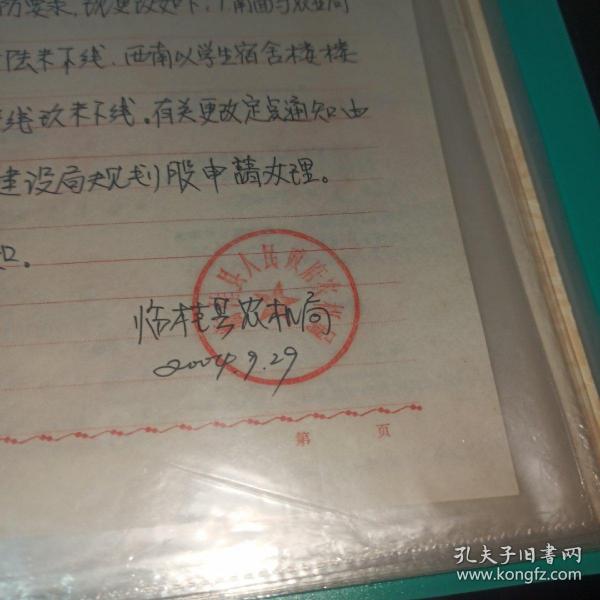 防要求,现更改如下:南面与农业局
陆米下线.西南以学生宿舍楼楼
线玖米下线。有关更改定点通知由
建设局规划股申請办理。
临桂县农机局
2004.9.29
县人民政府农机局
第 页
孔夫子旧書网
www.kongfz.com